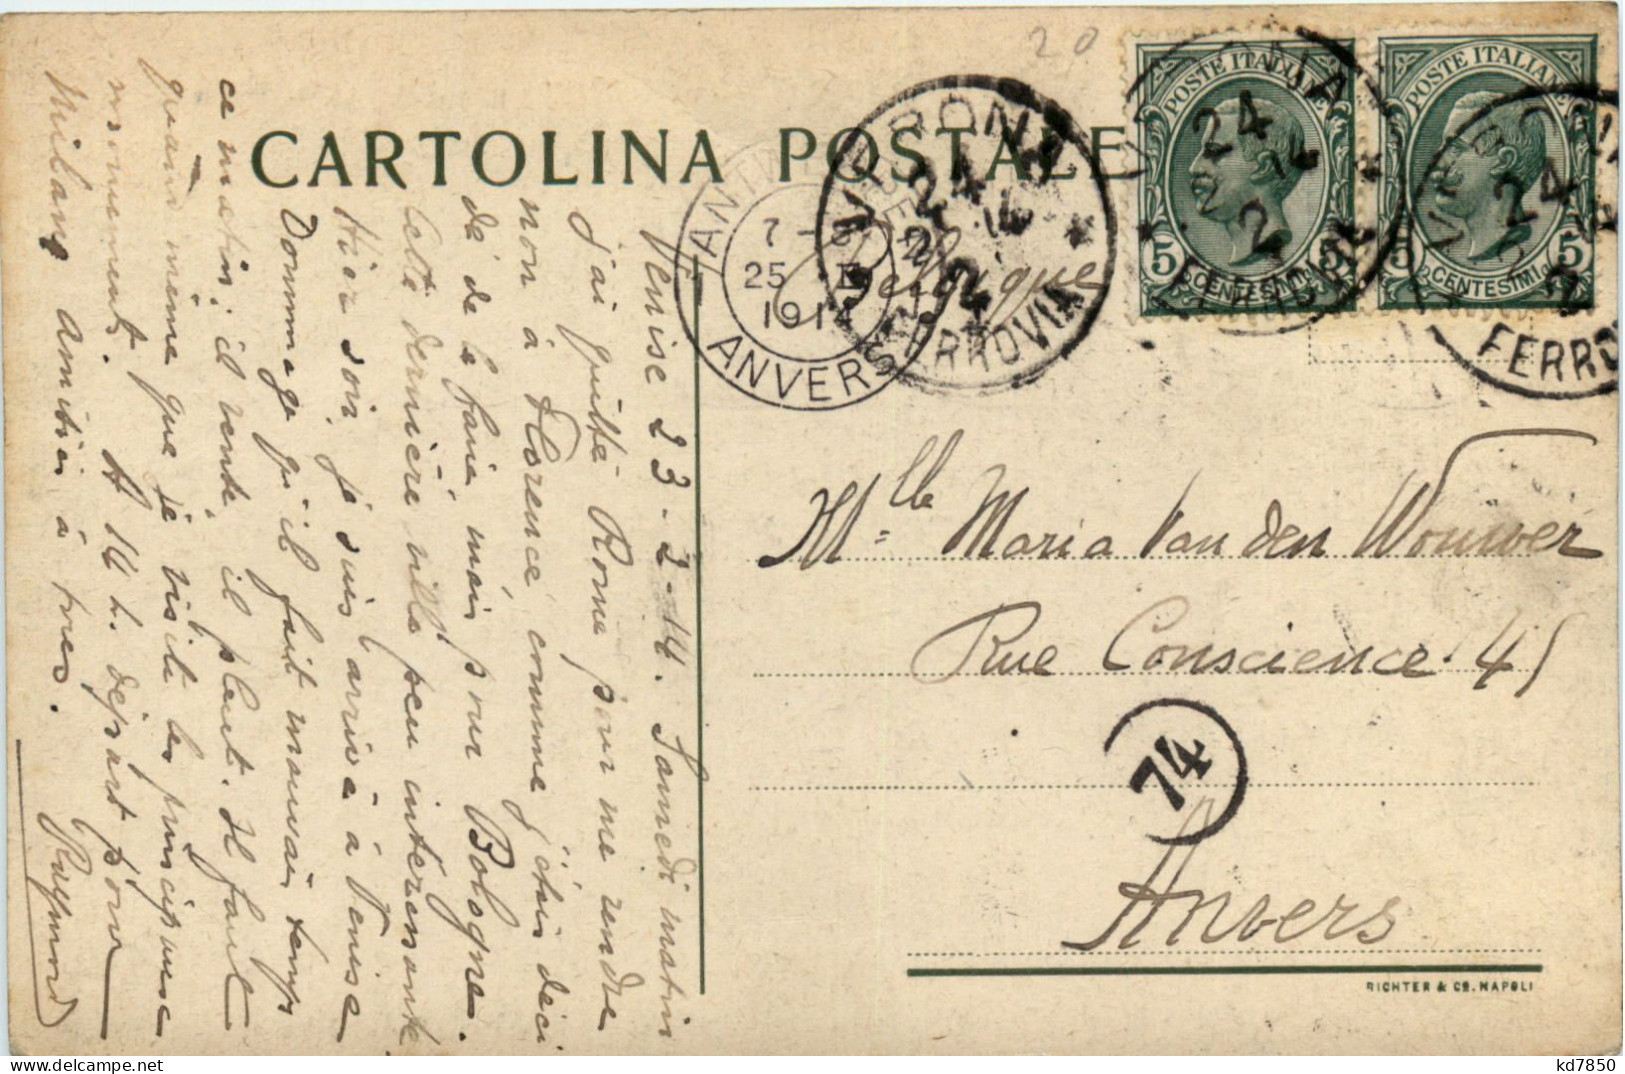 20
CARTOLINA POSTALE
Belgique
VERONA
24
2
14
FERROVIA
POSTE ITALIANE
5 CENTESIMI 5
VERONA
24
2
14
FERROVIA
POSTE ITALIANE
5 CENTESIMI 5
24
FERRO
ANTWERPEN
25 II
1914
ANVERS
Venise 23-2-14. Samedi matin
j'ai quitté Rome pour me rendre
non à Florence comme j'étais déci
dé de le faire mais pour Bologne.
Cette dernière ville peu interessante
Hier soir je suis arrivé à Venise
Dommage qu'il fait mauvais temps
ce matin; il vente, il pleut. Il faut
quand même que je visite les principaux
monuments. A 14 h. départ pour
Milano. Amitiés à tous.
Raymond
Mlle Maria Van den Wouwer
Rue Conscience 45
74
Anvers
RICHTER & Co. NAPOLI
kd7850